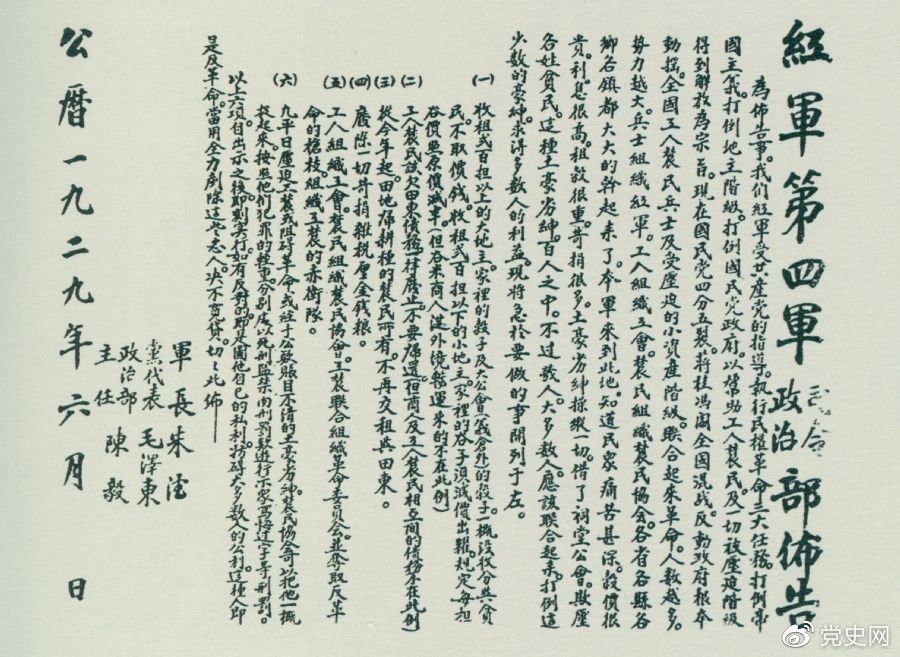 紅軍第四軍司令政治部佈告
為佈告事。我們紅軍受共產党的指導。執行民權革命三大任務。打倒帝
國主義。打倒地主階級。打倒國民党政府。以幫助工人農民。及一切被壓迫階級
得到解放為宗旨。現在國民党四分五裂。蔣桂馮閻全國混战。反動政府根本
動搖。全國工人農民兵士及受壓迫的小資產階級。聯合起來革命。人數越多。
勢力越大。兵士組織紅軍。工人組織工會。農民組織農民協会。各省各縣各
鄉各鎮都大大的幹起来了。本軍来到此地。知道民衆痛苦甚深。穀價很
貴。利息很高。租穀很重。苛捐很多。土豪劣紳操縱一切。借了祠堂公會。欺壓
各姓貧民。這種土豪劣紳。百人之中。不过数人。大多数人。應該联合起来。打倒這
少数的豪紳。求得多数人的利益。現將急於要做的事開列于左。
(一) 收租弍百担以上的大地主。家裡的穀子及大公會(義倉外)的穀子。一概没收分與貧
民。不取價钱。收租弍百担以下的小地主。家裡的谷子須減價出糶。規定每担
谷價照原價減半。(但谷米商人從外境辦運来的不在此例)
(二) 工人農民該欠田東債務。一律廢止。不要歸還。(但商人及工人農民相互間的債務不在此例)
(三) 從今年起。田地歸耕種的農民所有。不再交租與田東。
(四) 廢除一切苛捐雜税厘金錢粮。
(五) 工人組織工會。農民組織農民協會。工農联合組織革命委員会。並奪取反革
命的槍枝組織工農的赤衛隊。
(六) 凡平日壓迫工農或阻碍革命。或經手公欵賬目不清的土豪劣紳。農民協會可以把他一概
捉起来。按照他们犯罪的輕重。分别處以死刑監禁肉刑罰款遊行示衆寫悔过字等刑罰。
以上六項自出示之後。即刻实行。如有反對的即是圖他自己的私利。妨碍大多数人的公利。這種人即
是反革命。當用全力剷除這些惡人决不寬貸。切切此佈
軍長 朱德
黨代表 毛澤東
政治部主任 陳毅
公曆一九二九年六月 日
党史网